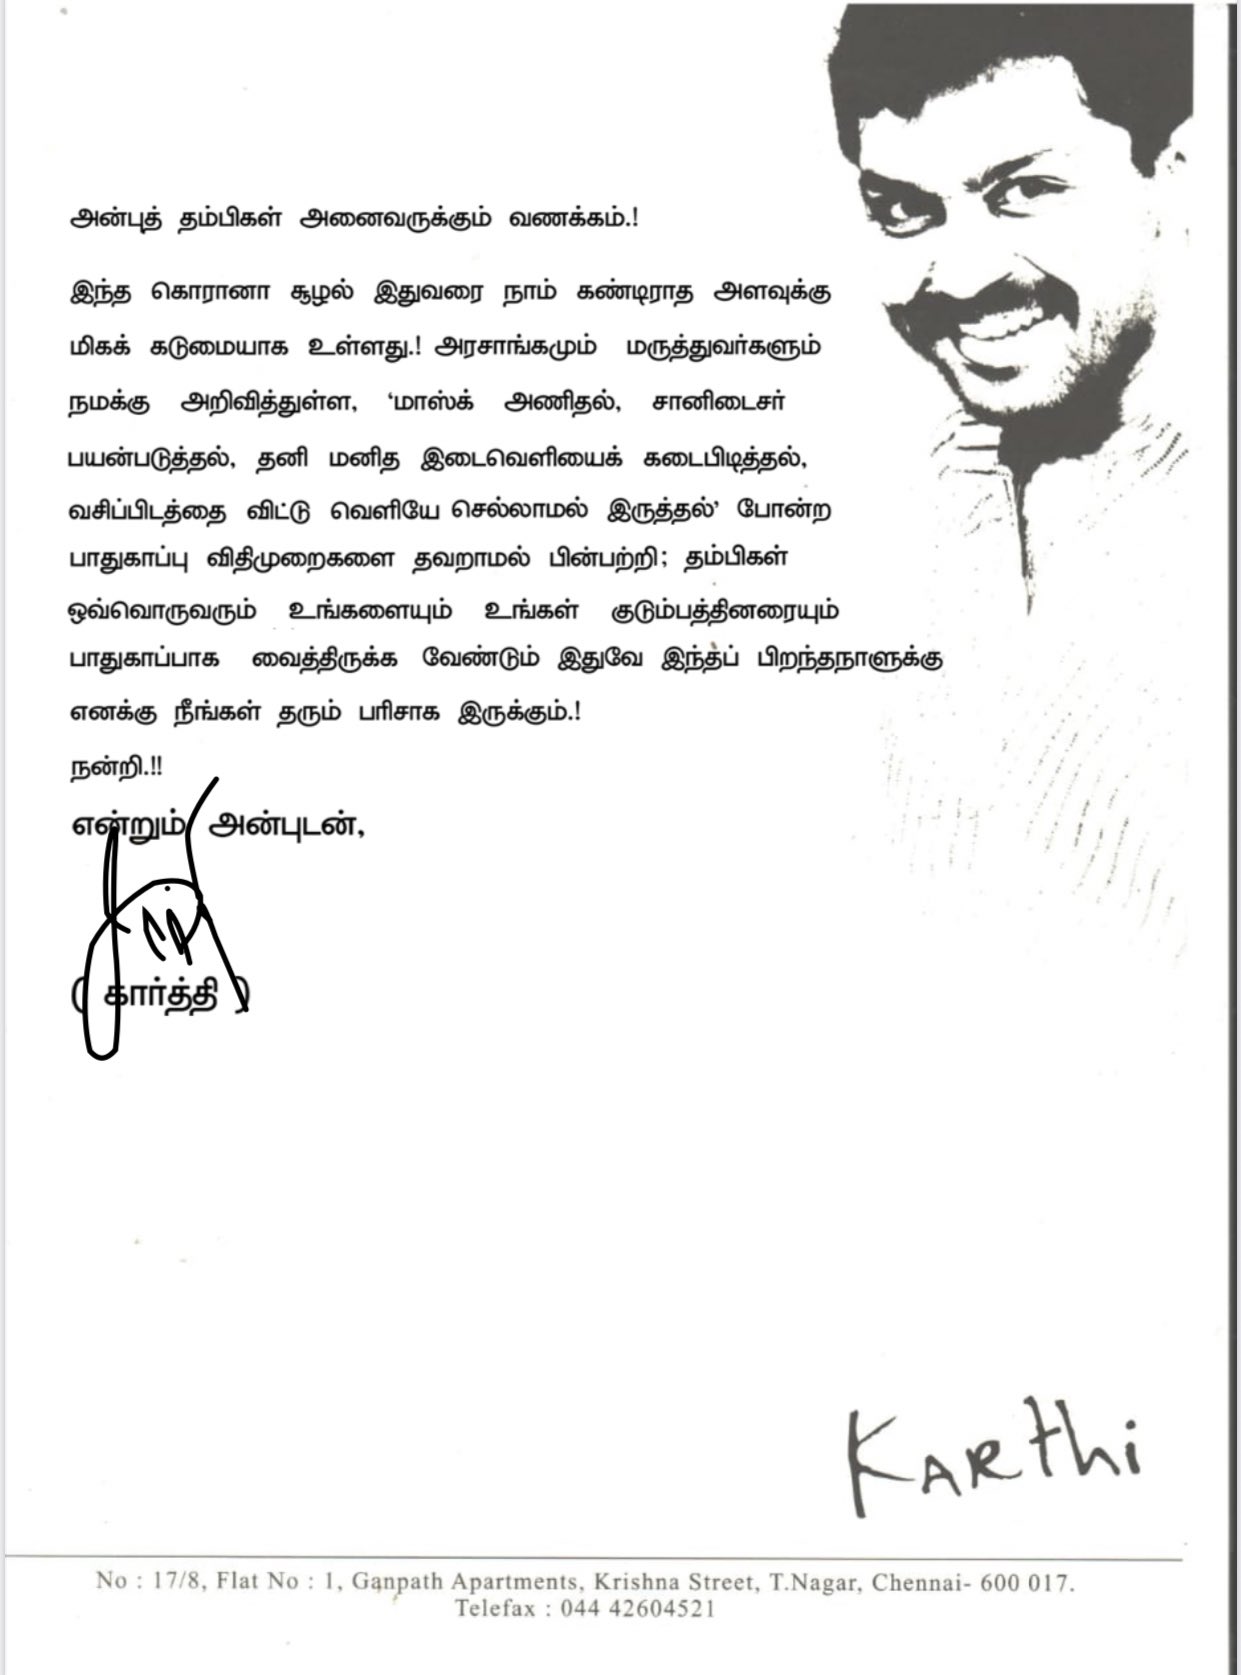 அன்புத் தம்பிகள் அனைவருக்கும் வணக்கம்.!
இந்த கொரானா சூழல் இதுவரை நாம் கண்டிராத அளவுக்கு
மிகக் கடுமையாக உள்ளது.! அரசாங்கமும் மருத்துவர்களும்
நமக்கு அறிவித்துள்ள, ‘மாஸ்க் அணிதல், சானிடைசர்
பயன்படுத்தல், தனி மனித இடைவெளியைக் கடைபிடித்தல்,
வசிப்பிடத்தை விட்டு வெளியே செல்லாமல் இருத்தல்’ போன்ற
பாதுகாப்பு விதிமுறைகளை தவறாமல் பின்பற்றி; தம்பிகள்
ஒவ்வொருவரும் உங்களையும் உங்கள் குடும்பத்தினரையும்
பாதுகாப்பாக வைத்திருக்க வேண்டும் இதுவே இந்தப் பிறந்தநாளுக்கு
எனக்கு நீங்கள் தரும் பரிசாக இருக்கும்.!
நன்றி.!!
என்றும் அன்புடன்,
( கார்த்தி )
KARthi
No : 17/8, Flat No : 1, Ganpath Apartments, Krishna Street, T.Nagar, Chennai- 600 017.
Telefax : 044 42604521